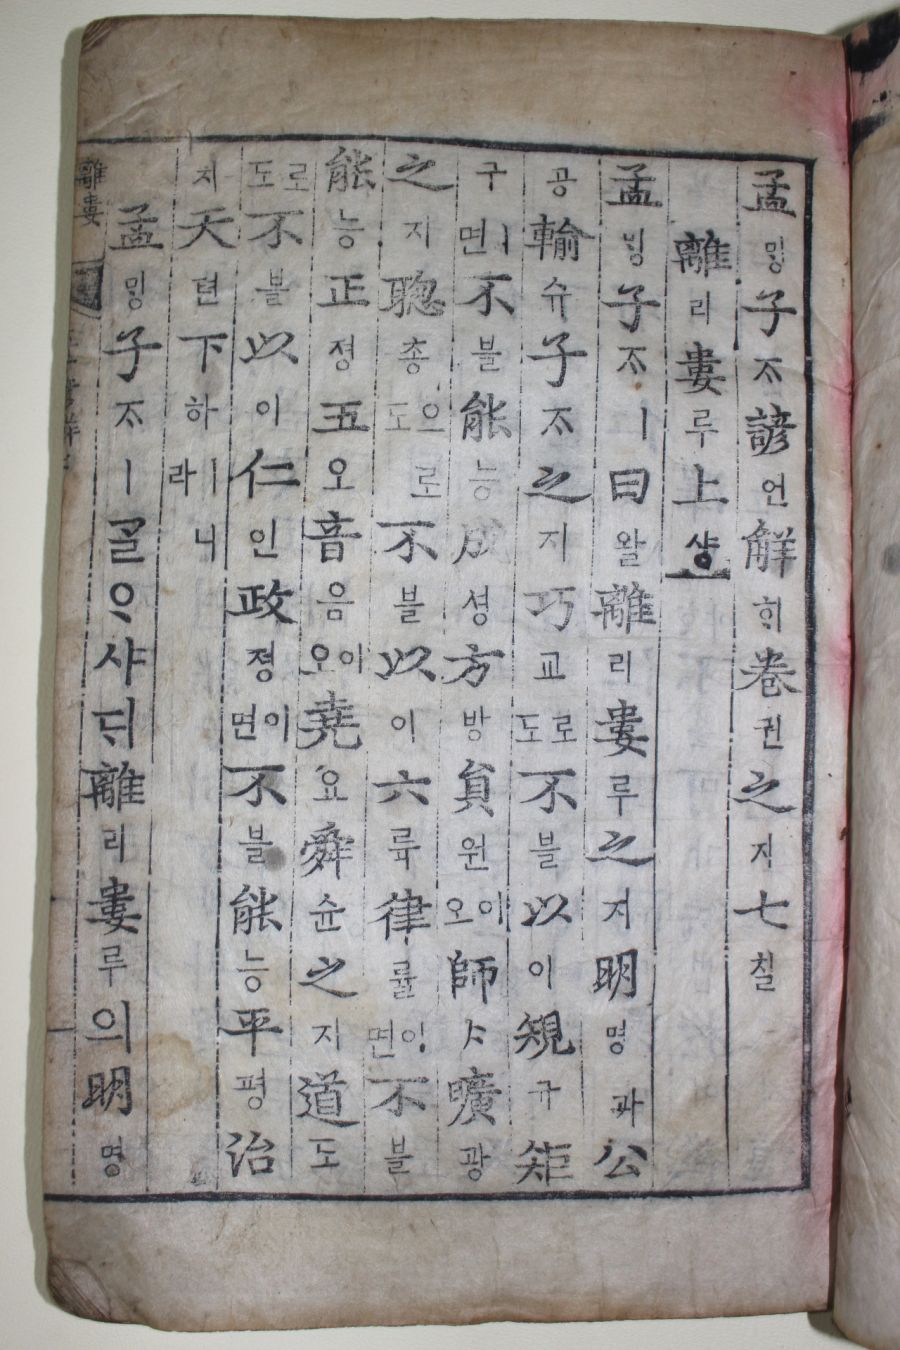 孟ᄆᆡᆼ子ᄌᆞ諺언解ᄒᆡ卷권之지七칠
離리婁루上샹
孟ᄆᆡᆼ子ᄌᆞㅣ曰왈離리婁루之지明명과公
공輸슈子ᄌᆞ之지巧교로도不블以이規규矩
구ㅣ면不블能능成셩方방員원이오師ᄉᆞ曠광
之지聰총으로도不블以이六륙律률이면不블
能능正졍五오音음이오堯요舜슌之지道도
로도不블以이仁인政졍이면不블能능平평治
치天텬下하ㅣ니라
孟ᄆᆡᆼ子ᄌᆞㅣᄀᆞᆯᄋᆞ샤ᄃᆡ離리婁루의明명
離婁